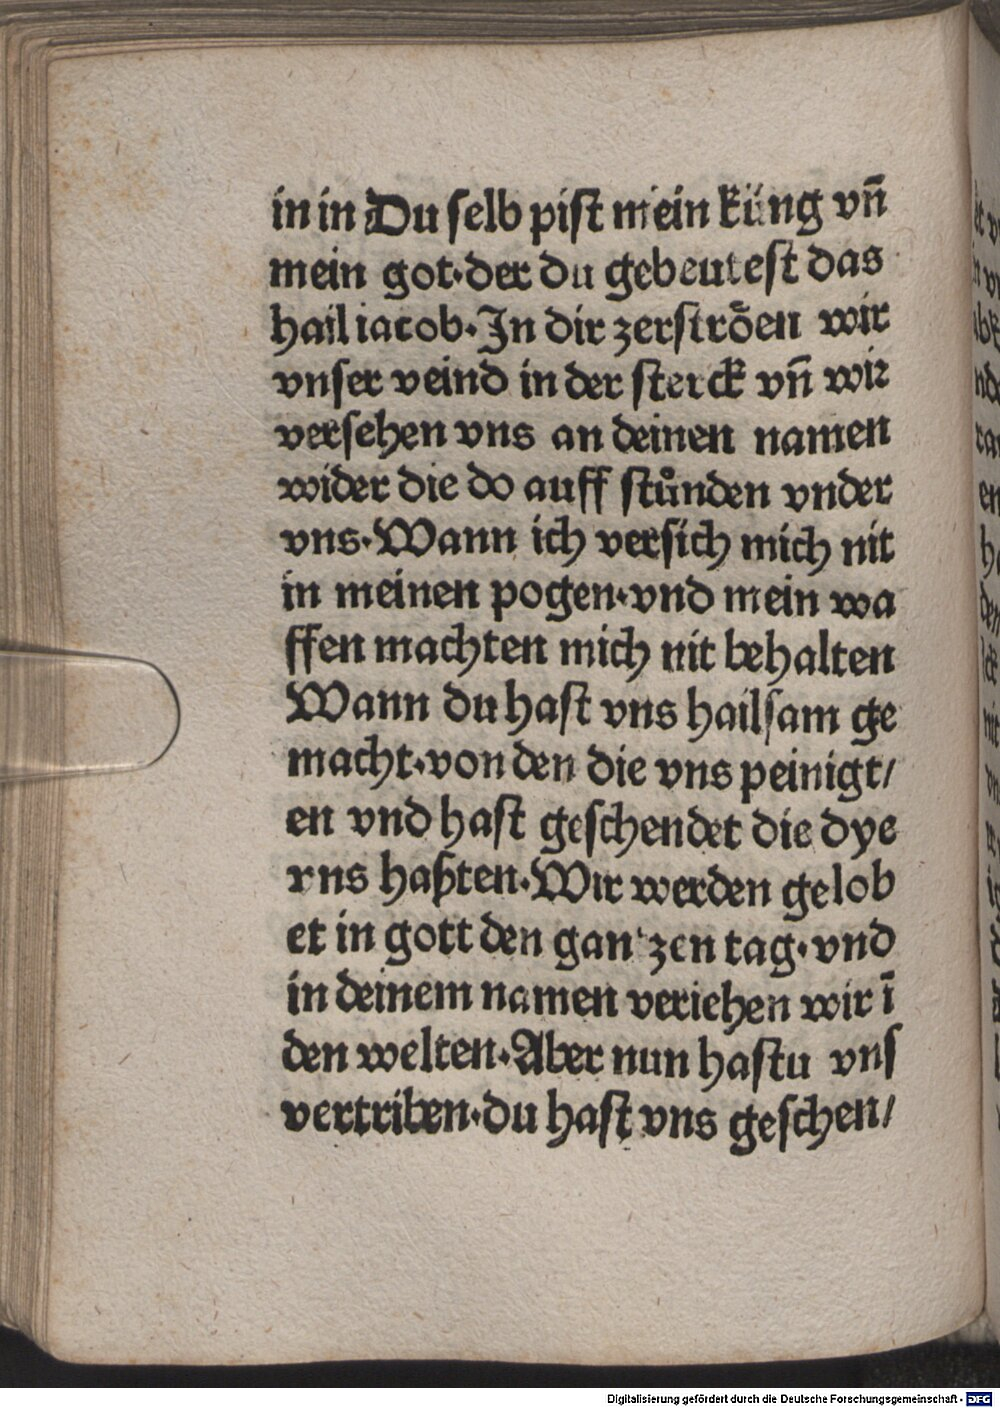 in in Du ſelb piſt mein küng vn̄
mein got·der du gebeuteſt das
hail iacob·In dir zerſtrŏen wir
vnſer veind in der ſterck vn̄ wir
verſehen vns an deinen namen
wider die do auff ſtůnden vnder
vns·Wann ich verſich mich nit
in meinen pogen·vnd mein wa
ffen machten mich nit behalten
Wann du haſt vns hailſam ge
macht·von den die vns peinigt/
en vnd haſt geſchendet die dye
vns haßten·Wir werden gelob
et in gott den gantzen tag·vnd
in deinem namen veriehen wir ī
den welten·Aber nun haſtu vnſ
vertriben·du haſt vns geſchen/
Digitalisierung gefördert durch die Deutsche Forschungsgemeinschaft - DFG